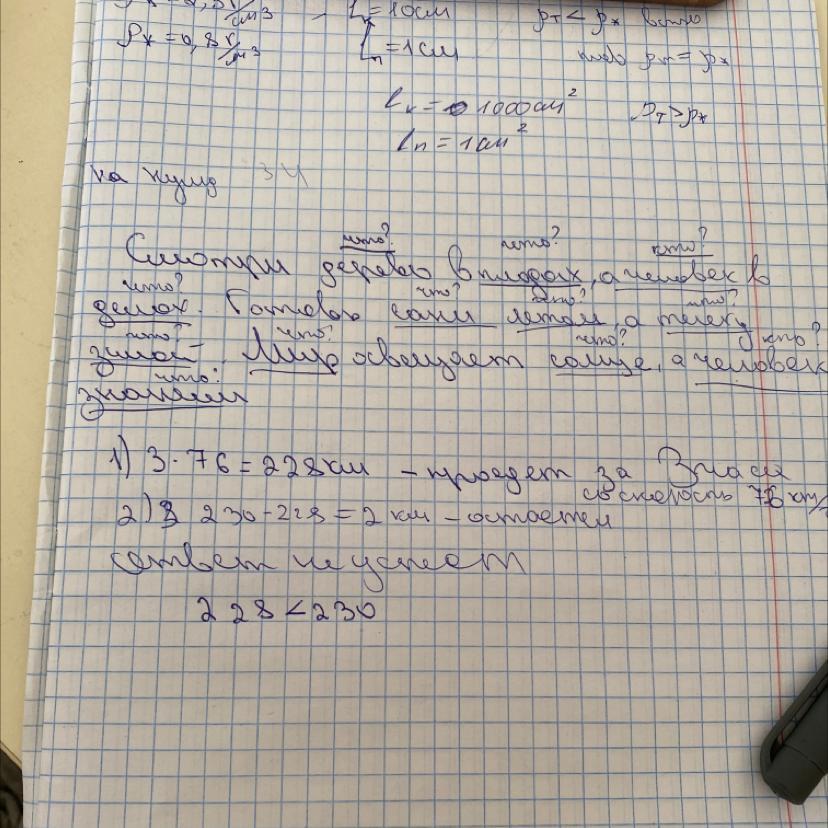 ρж=0,8 г/см³ lк=10см ρт<ρж всплы
lп=1см ρт=ρж
lк=1000см² ρт>ρж
lп=1см²
на
что? что? кто?
Смотри дерево в плодах, а человек в
что? что? что? что?
делах. Готовь сани летом, а телегу
что? что? что? кто?
зимой. Мир освещает солнце, а человек
что?
знанием
1) 3·76=228км – проедет за 3 часа
со скорость 76 км/
2) 230-228=2км – остается
ответ не успеет
228<230